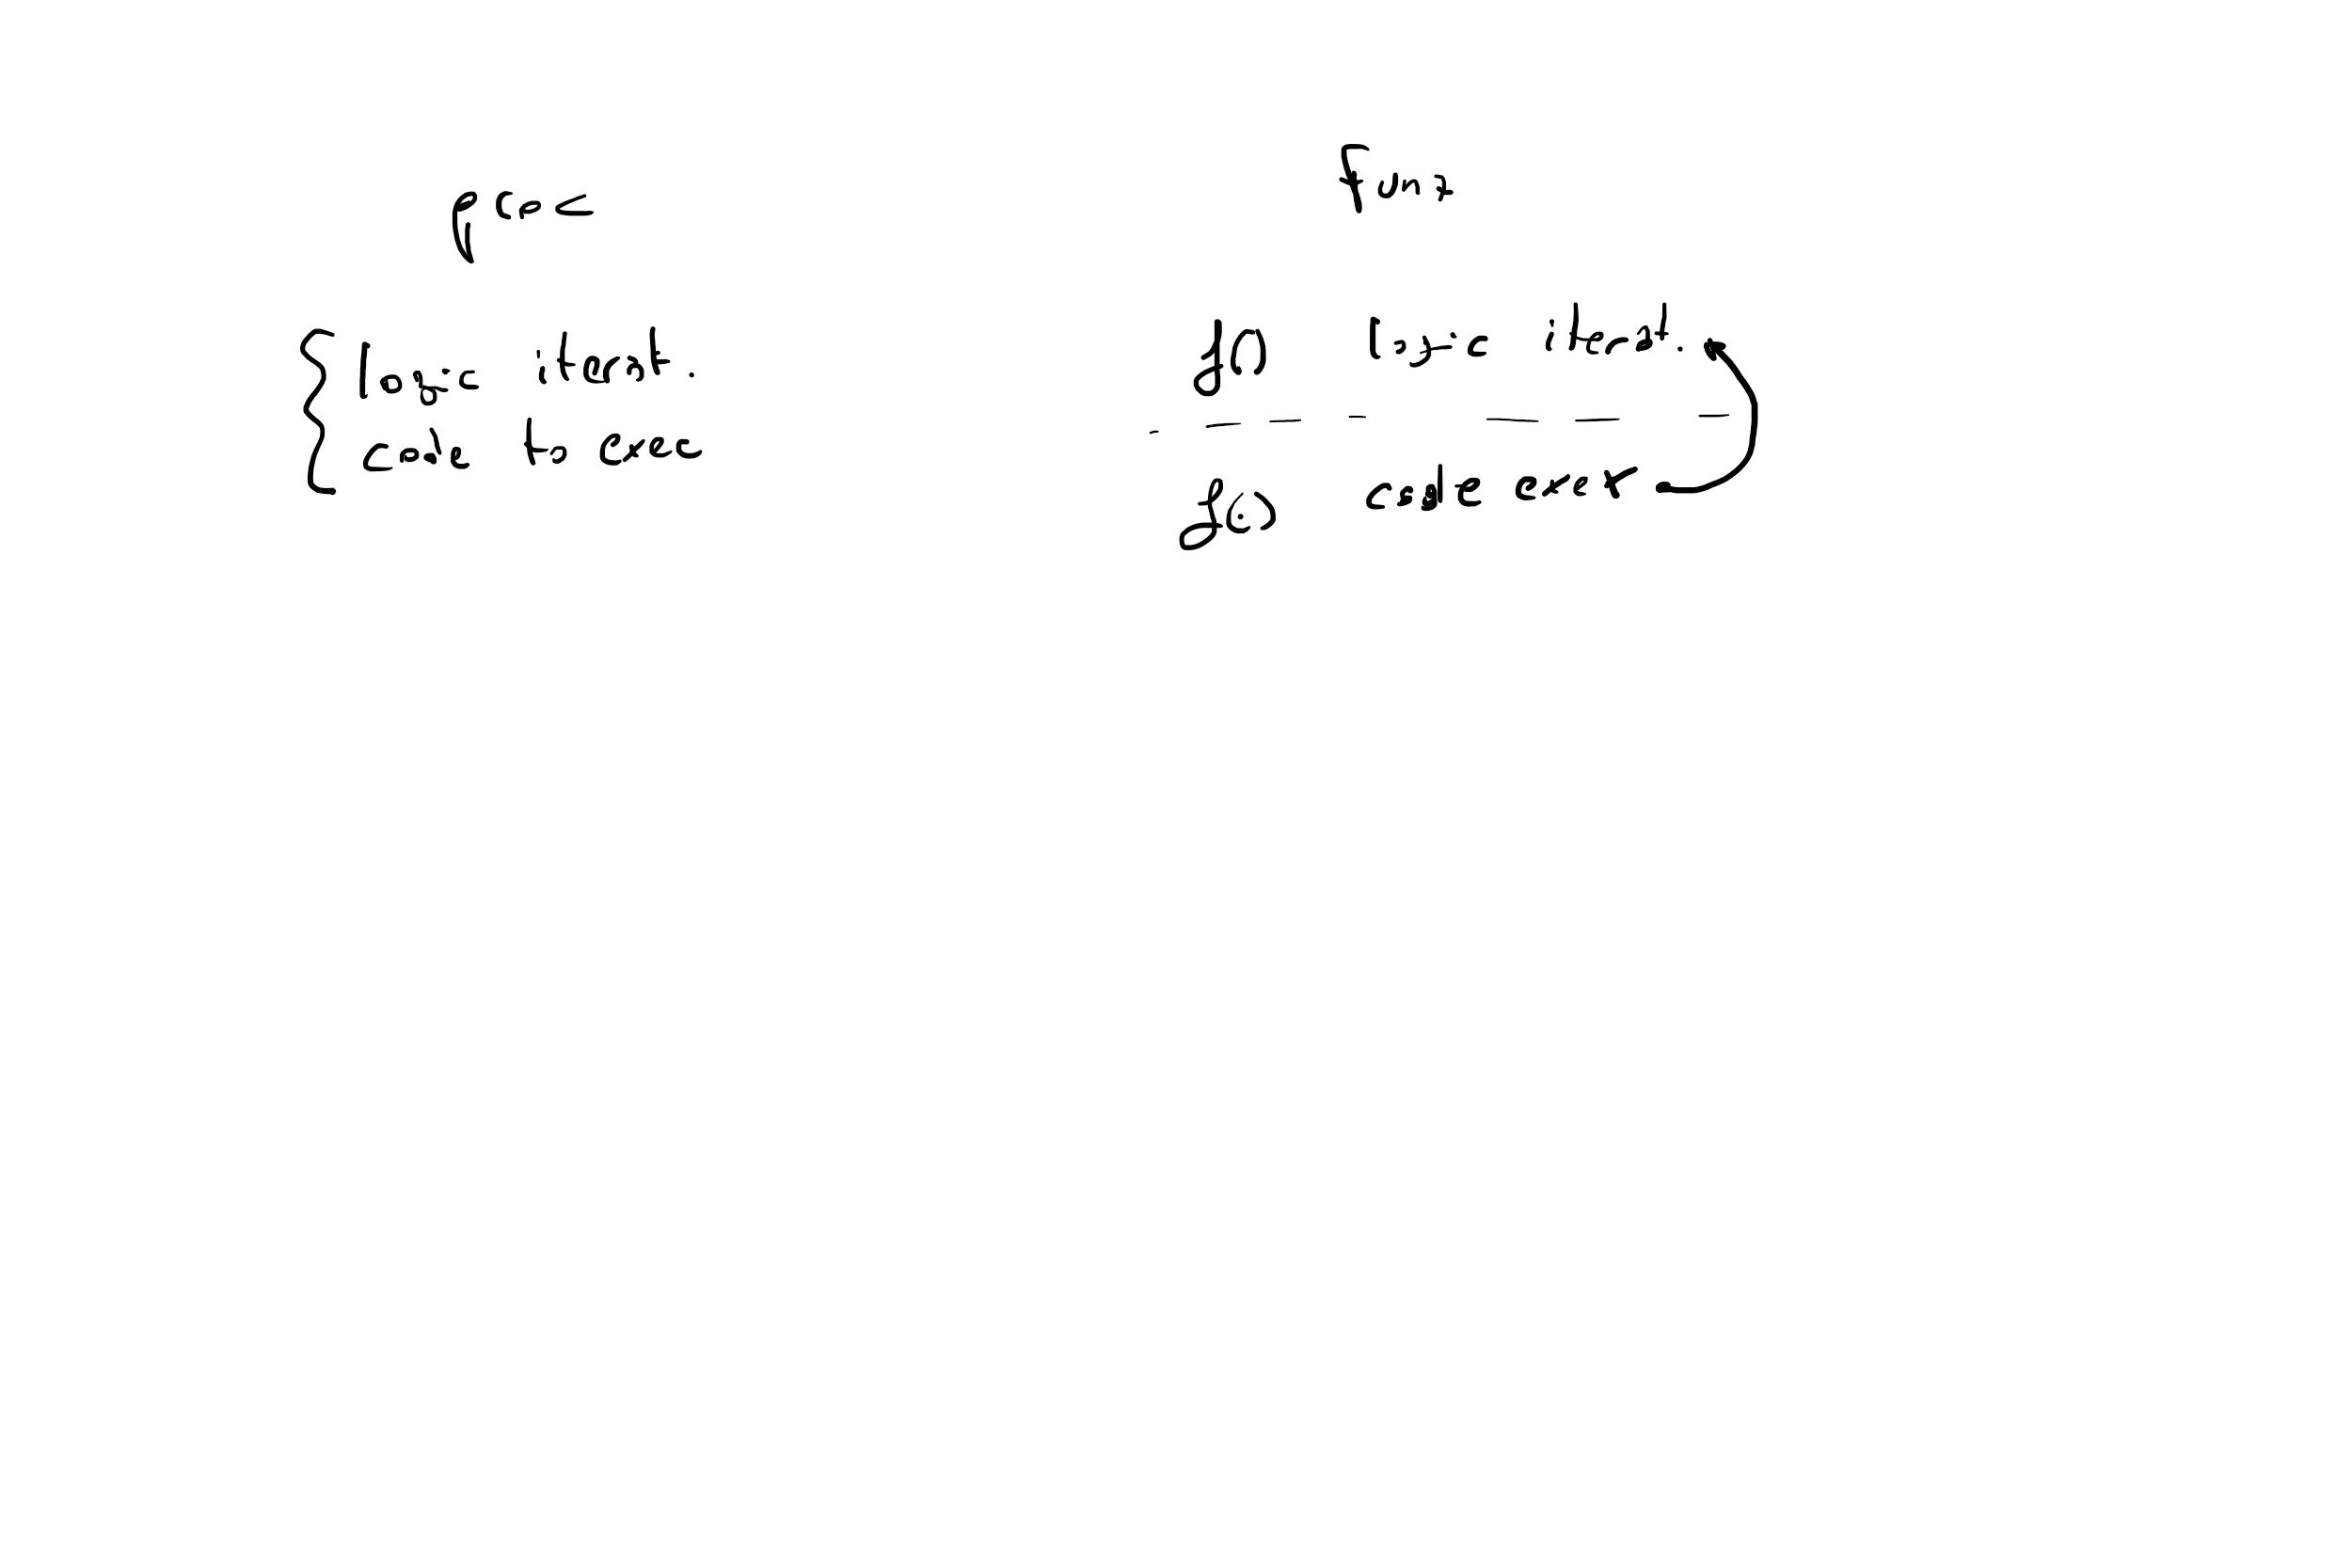 proc
logic iterat.
code to exec
func
f() logic iterat.
f(.) code exex